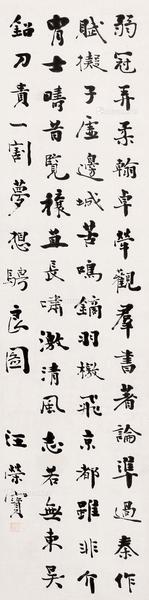 弱冠弄柔翰卓犖觀羣書著論準過秦作
賦擬子虛邊城苦鳴鏑羽檄飛京都雖非介
胄士疇昔覽穰苴長嘯激清風志若無東吳
鉛刀貴一割夢想騁良圖 汪榮寶